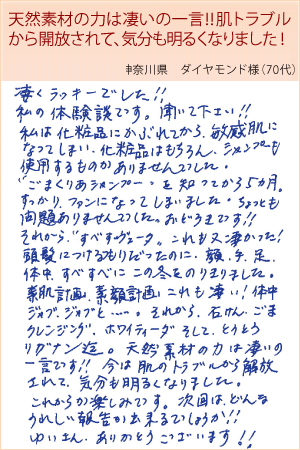 天然素材の力は凄いの一言!!肌トラブル
から開放されて、気分も明るくなりました!
神奈川県　ダイヤモンド様（70代）
凄くラッキーでした!!
私の体験談です。聞いて下さい!!
私は化粧品にかぶれてから、敏感肌に
なってしまい、化粧品はもちろん、シャンプーも
使用するものがありませんでした。
"ごまくりあシャンプー"を知ってから5カ月。
すっかり、ファンになってしまいました。ちょっとも
問題ありませんでした。おどろきです!!
それから、"すべすべヴェータ"これも又凄かった!
頭髪につけるもりだったのに、顔、手、足、
体中、すべすべにこの冬をのりきりました。
素肌計画、素顔計画、これも凄い!体中
ジャブ、ジャブと……。それから、石けん、ごま
クレンジング、ホワイティーダ そして、とうとう
リグナン迄。天然素材の力は凄いの
一言です!! 今は肌のトラブルから解放
されて、気分も明るくなりました。
これからが楽しみです。次回は、どんな
うれしい報告が出来るでしょうか!!
ゆいさん、ありがとうございます!!